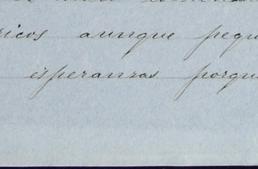 ricos aunque pequ
esperanzas porqu